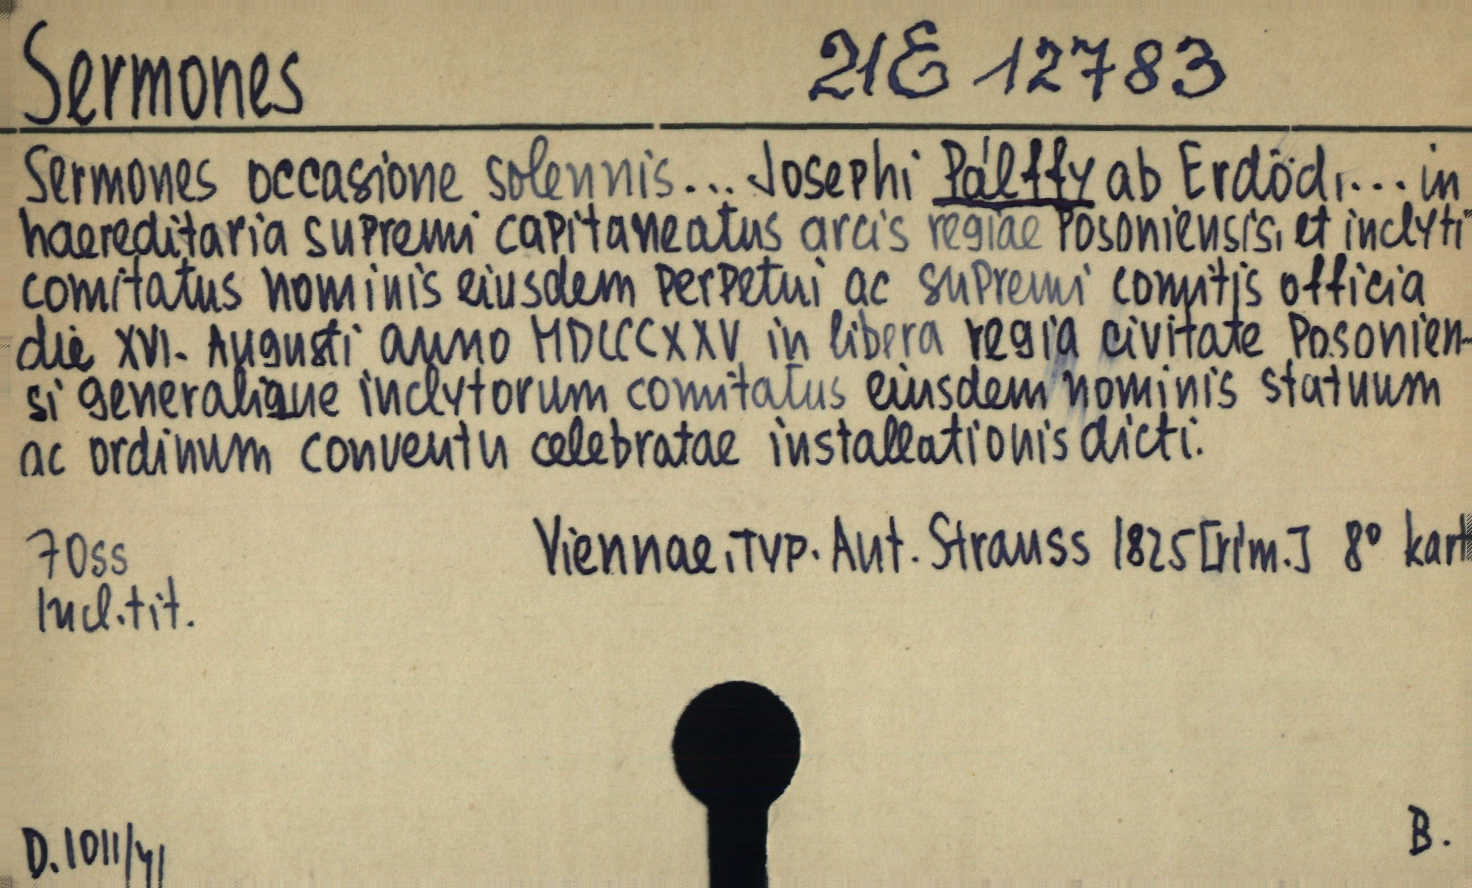 Sermones 21E 12783
Sermones occasione solennis... Josephi Pálffy ab Erdöd,... in
haereditaria supremi capitaneatus arcis regiae Posoniensis, et inclyti
comitatus nominis eiusdem perpetui ac supremi comitis officia
die XVI. Augusti anno MDCCCXXV in libera regia civitate Posonien-
si generalique inclytorum comitatus eiusdem nominis statuum
ac ordinum conventu celebratae installationis dicti.
70ss Viennae, Typ. Ant. Strauss 1825 [rim.] 8° kart
Incl. tit.
D. 1011/41 B.